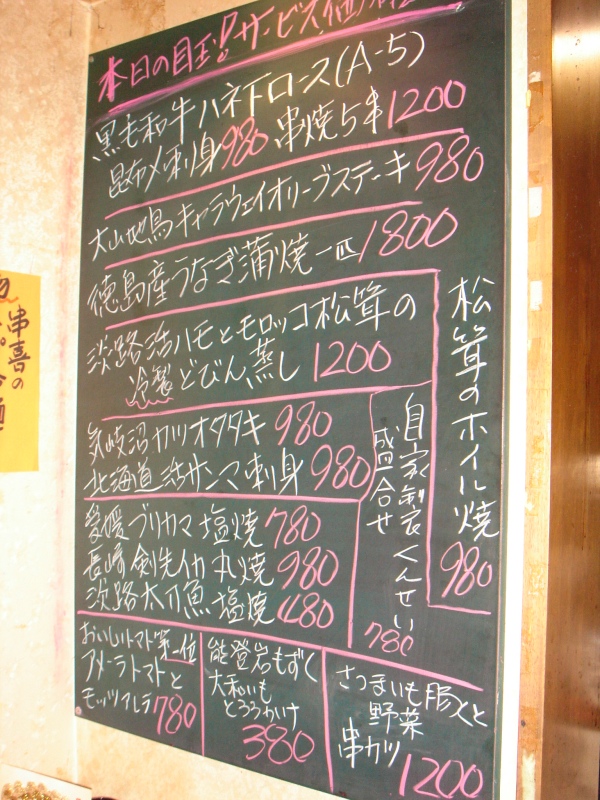 本日の目玉!サービス価格
黒毛和牛ハネ下ロース(A-5)
昆布〆刺身980 串焼5本1200
大山地鳥キャラウェイオリーブステーキ980
徳島産うなぎ蒲焼一匹1800
淡路活ハモとモロッコ松茸の
冷製どびん蒸し 1200
松茸のホイル焼
980
気岐沼カツオタタキ 980
北海道活サンマ刺身 980
自家製くんせい
盛合せ
780
愛媛ブリカマ塩焼 780
長崎剣先イカ丸焼 980
淡路太刀魚塩焼 480
おいしいトマト第一位
アメーラトマトと
モッツァレラ780
能登岩もずく
大和いも
とろろかけ
380
さつまいも豚くと
野菜
串カツ
1200
串喜の